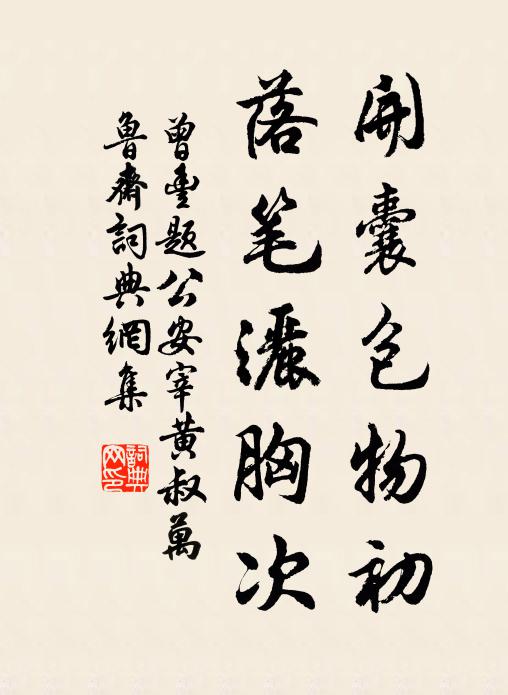 開囊包物初
落笔灑胸次
曾豊題公安宰黄叔萬
魯齋詞典網集
詞典网印